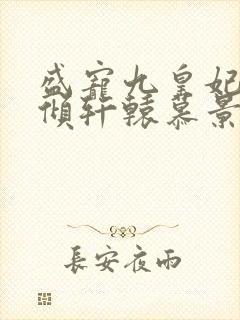 盛寵九皇妃
傾轩轅慕景
長安夜雨